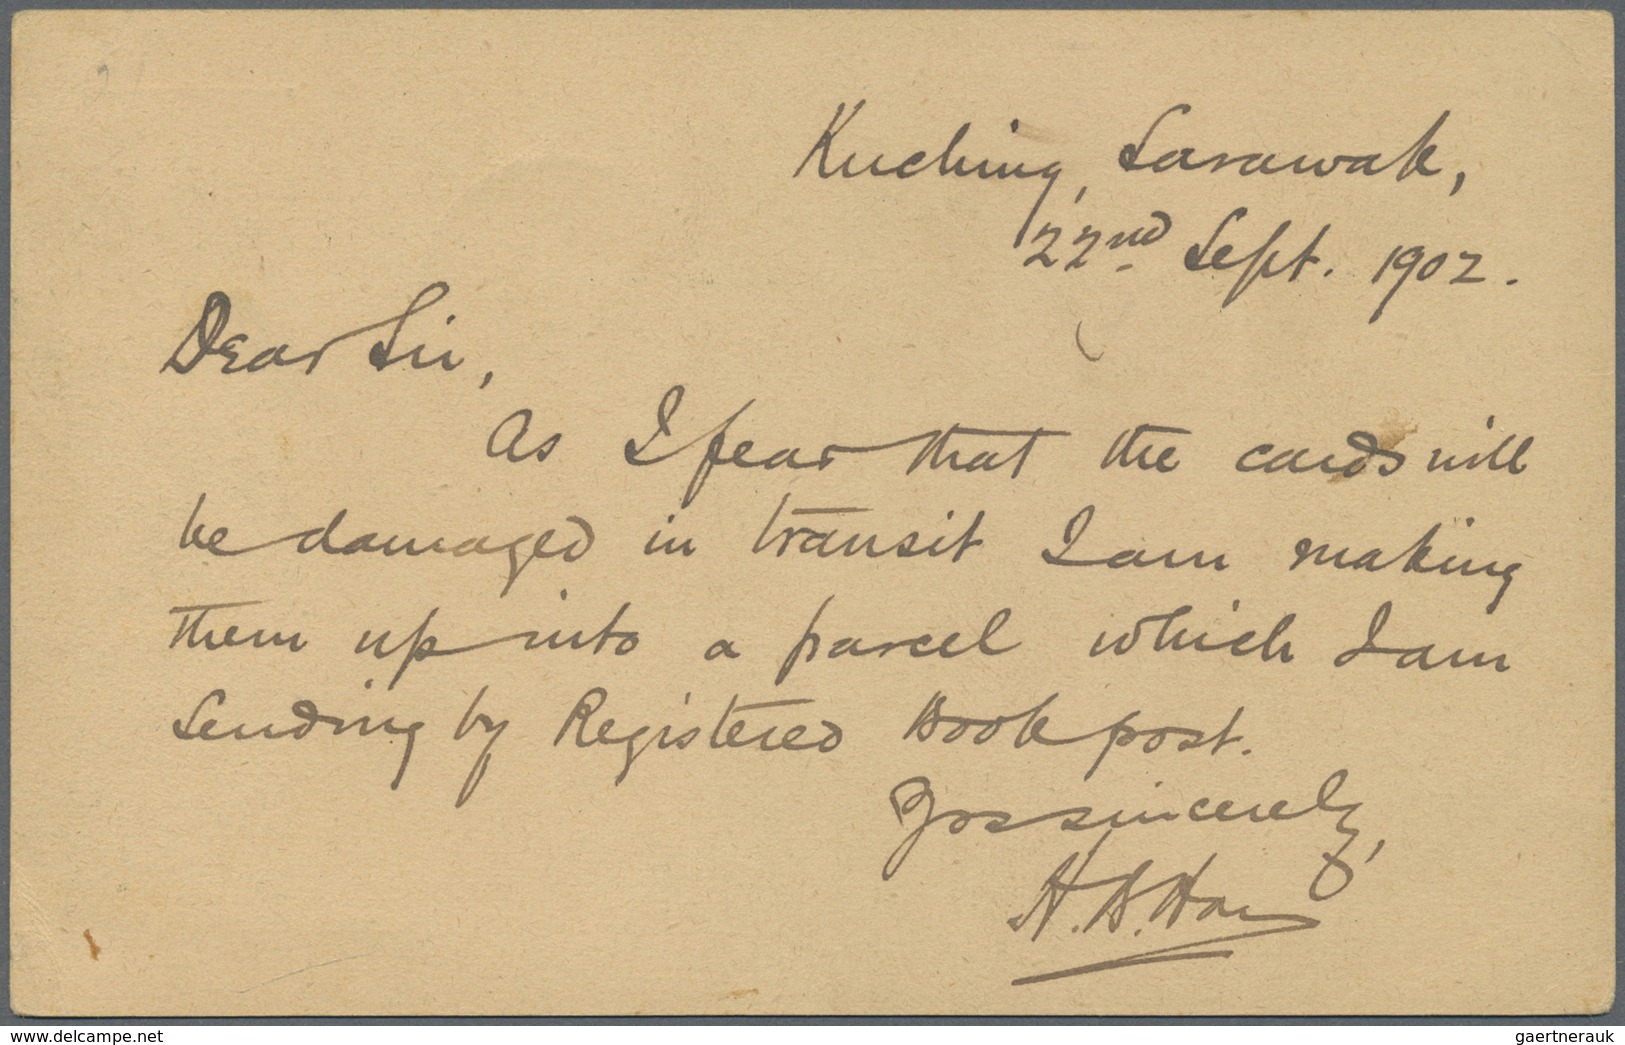 Kuching, Sarawak,
22nd Sept. 1902.
Dear Sir,
As I fear that the cards will
be damaged in transit I am making
them up into a parcel which I am
sending by Registered Book post.
Yos sincerely,
H. B.
© www.delcampe.net
gaertnerauk